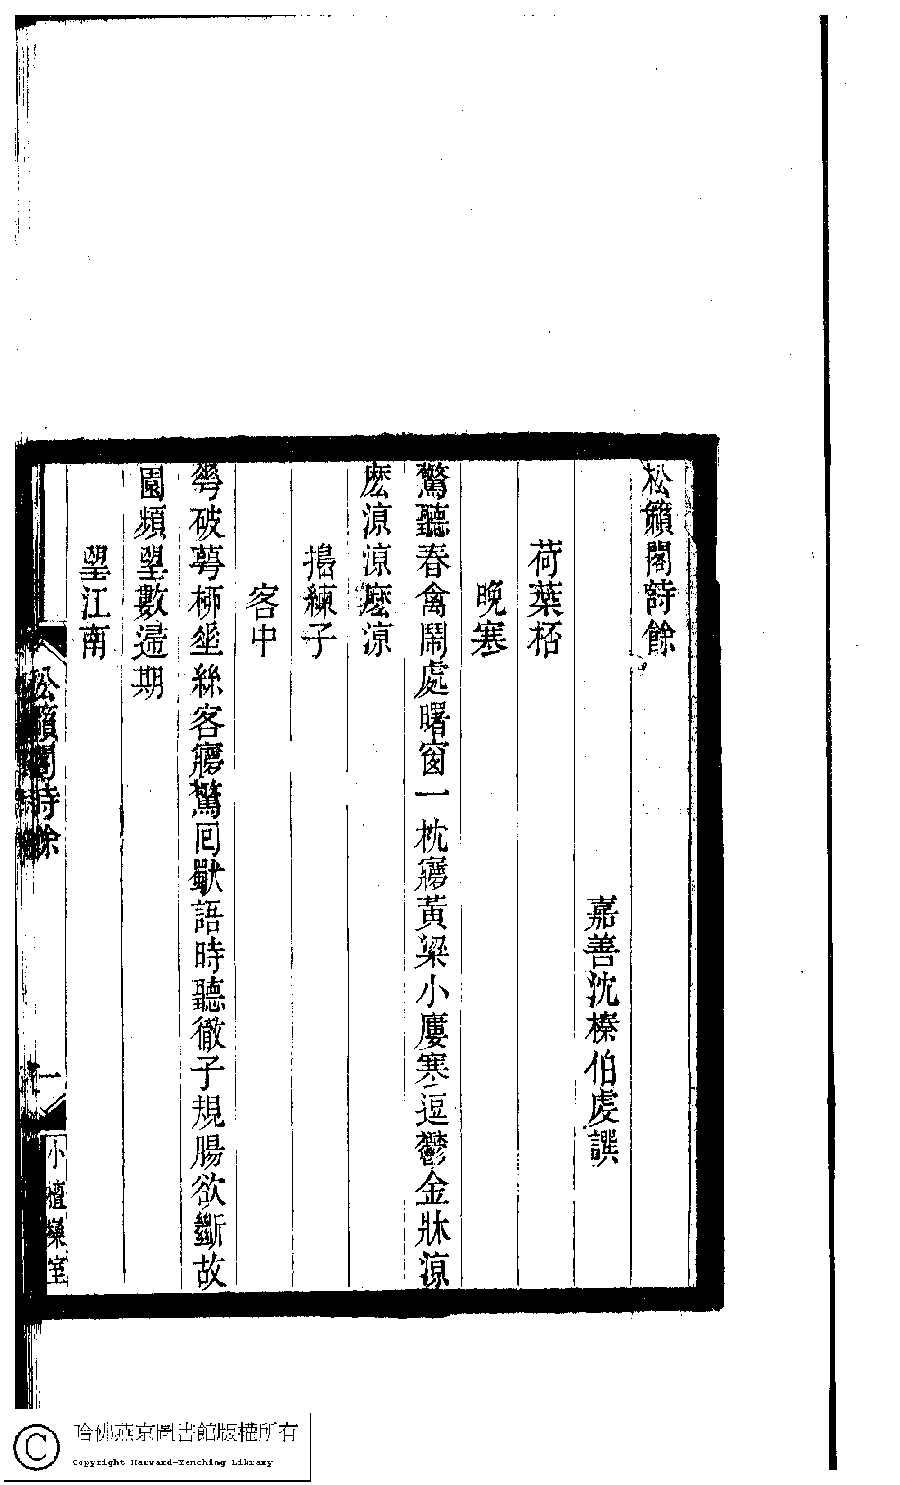 松籟閣詩餘
嘉善沈榛伯虔譔
荷葉桮
晚寒
驚聽春禽鬧處曙窗一枕寱黃粱小廔寒逗鬱金牀涼
麽涼涼麽涼
搗練子
客中
雩破萼桺坙絲客寱驚回獃語時聽徹子規腸欲斷故
園頻朢數歸期
朢江南
松籟閣詩餘
一
小檀欒室
哈佛燕京圖書館版權所有
Copyright Harvard-Yenching Library